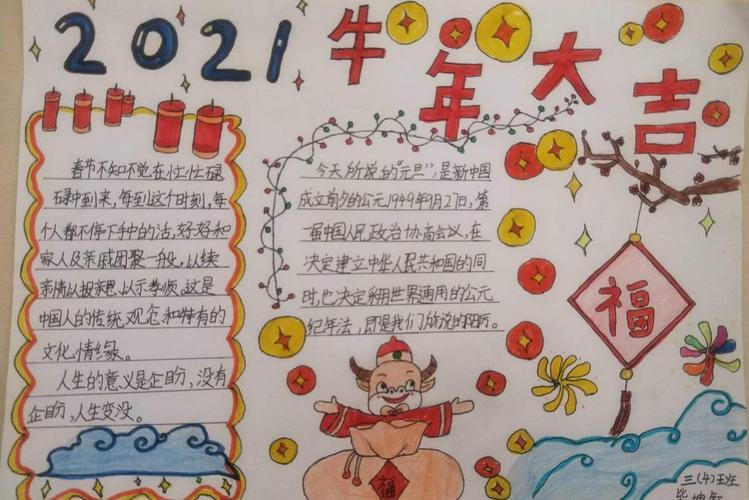 2021牛年大吉
春节不知不觉在忙忙碌
碌中到来,每到这个时刻,每
个人都不停下手中的活,好好和
家人及亲戚团聚一般,以续
亲情以报亲恩,以示孝顺,这是
中国人的传统观念和特有的
文化情缘。
人生的意义是企盼,没有
企盼,人生变没。
今天所说的“元旦”,是新中国
成立前夕的公元1949年9月27日,第
一届中国人民政治协商会议,在
决定建立中华人民共和国的同
时,也决定采用世界通用的公元
纪年法,即是我们所说的阳历。
福
福
三(4)班